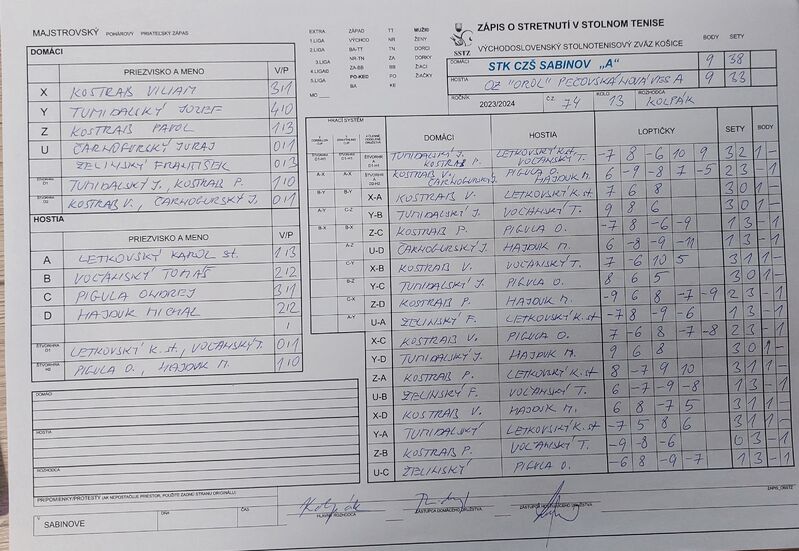 MAJSTROVSKÝ POHÁROVÝ PRIATEĽSKÝ ZÁPAS
DOMÁCI
PRIEZVISKO A MENO V/P
X KOSTRAB VILIAM 3/1
Y TUMIDALSKÝ JOZEF 4/0
Z KOSTRAB PAVOL 1/3
U ČARNOGURSKÝ JURAJ 0/1
ŽELINSKÝ FRANTIŠEK 0/3
ŠTVORHRA D1 TUMIDALSKÝ J., KOSTRAB P. 1/0
ŠTVORHRA D2 KOSTRAB V., ČARNOGURSKÝ J. 0/1
HOSTIA
PRIEZVISKO A MENO V/P
A LETKOVSKÝ KAROL st. 1/3
B VOĽANSKÝ TOMÁŠ 2/2
C PIGULA ONDREJ 3/1
D HAJDUK MICHAL 2/2
/
ŠTVORHRA D1 LETKOVSKÝ K. st., VOĽANSKÝ T. 0/1
ŠTVORHRA H2 PIGULA O., HAJDUK M. 1/0
DOMÁCI
HOSTIA
ROZHODCA
PRIPOMIENKY/PROTESTY (AK NEPOSTAČUJE PRIESTOR, POUŽITE ZADNÚ STRANU ORIGINÁLU)
V SABINOVE DŇA ČAS
EXTRA ZÁPAD TT MUŽI
1.LIGA VÝCHOD NR ŽENY
2.LIGA BA-TT TN DORCI
3.LIGA NR-TN ZA DORKY
4.LIGA ZA-BB BB ŽIACI
5.LIGA PO-KE PO ŽIAČKY
BA KE
MO
SSTZ
ZÁPIS O STRETNUTÍ V STOLNOM TENISE
VÝCHODOSLOVENSKÝ STOLNOTENISOVÝ ZVÄZ KOŠICE BODY SETY
DOMÁCI STK CZŠ SABINOV „A" 9 38
HOSTIA OZ "OROL" PEČOVSKÁ NOVÁ VES A 9 33
ROČNÍK 2023/2024 Č.Z. 74 KOLO 13 ROZHODCA KOLPÁK
HRACÍ SYSTÉM DOMÁCI HOSTIA LOPTIČKY SETY BODY
TUMIDALSKÝ J. KOSTRAB P. LETKOVSKÝ K. st. VOĽANSKÝ T. -7 8 -6 10 9 3 2 1 -
KOSTRAB V. ČARNOGURSKÝ J. PIGULA O. HAJDUK M. 6 -9 -8 7 -5 2 3 - 1
X-A KOSTRAB V. LETKOVSKÝ K. st. 7 6 8 3 0 1 -
Y-B TUMIDALSKÝ J. VOĽANSKÝ T. 9 8 6 3 0 1 -
Z-C KOSTRAB P. PIGULA O. -7 8 -6 -9 1 3 - 1
U-D ČARNOGURSKÝ J. HAJDUK M. 6 -8 -9 -11 1 3 - 1
X-B KOSTRAB V. VOĽANSKÝ T. 7 -6 10 5 3 1 1 -
Y-C TUMIDALSKÝ J. PIGULA O. 8 6 5 3 0 1 -
Z-D KOSTRAB P. HAJDUK M. -9 6 8 -7 -9 2 3 - 1
U-A ŽELINSKÝ F. LETKOVSKÝ K. st -7 8 -9 -6 1 3 - 1
X-C KOSTRAB V. PIGULA O. 7 -6 8 -7 -8 2 3 - 1
Y-D TUMIDALSKÝ J. HAJDUK M. 9 6 8 3 0 1 -
Z-A KOSTRAB P. LETKOVSKÝ K. st 8 -7 9 10 3 1 1 -
U-B ŽELINSKÝ F. VOĽANSKÝ T. 6 -7 -9 -8 1 3 - 1
X-D KOSTRAB V. HAJDUK M. 6 8 -7 5 3 1 1 -
Y-A TUMIDALSKÝ LETKOVSKÝ K. st -7 5 8 6 3 1 1 -
Z-B KOSTRAB P. VOĽANSKÝ T. -9 -8 -6 0 3 - 1
U-C ŽELINSKÝ PIGULA O. -6 8 -9 -7 1 3 - 1
Kolpák
HLAVNÝ ROZHODCA ZÁSTUPCA DOMÁCEHO DRUŽSTVA ZÁSTUPCA HOSŤUJÚCEHO DRUŽSTVA